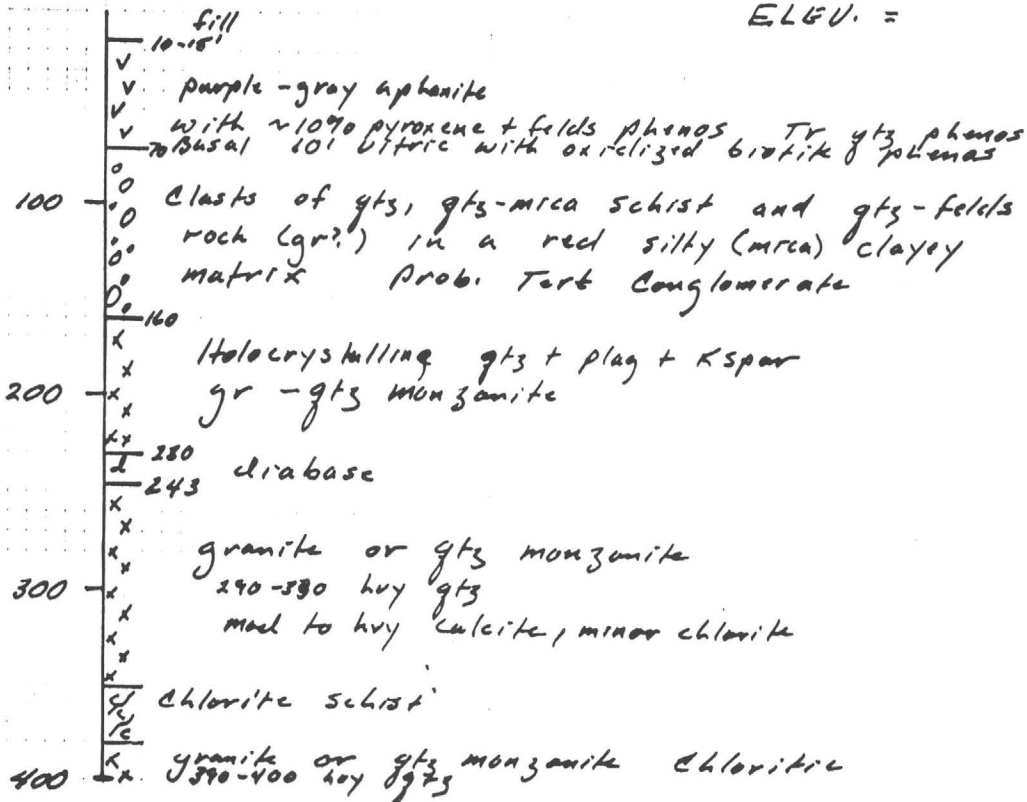 ELEV. =
fill
10-15'
purple-gray aphanite
with ~10% pyroxene + felds phenos Tr qtz phenos
70 Basal 10' vitric with oxidized biotite phenos
100 Clasts of qtz, qtz-mica schist and qtz-felds
rock (gr?) in a red silty (mica) clayey
matrix Prob. Tert Conglomerate
160
Holocrystalline qtz + plag + Kspar
200 gr - qtz monzanite
230
d diabase
243
granite or qtz monzanite
300 290-330 hvy qtz
mod to hvy calcite, minor chlorite
Chlorite schist
granite or qtz monzanite Chloritic
400 390-400 hvy qtz